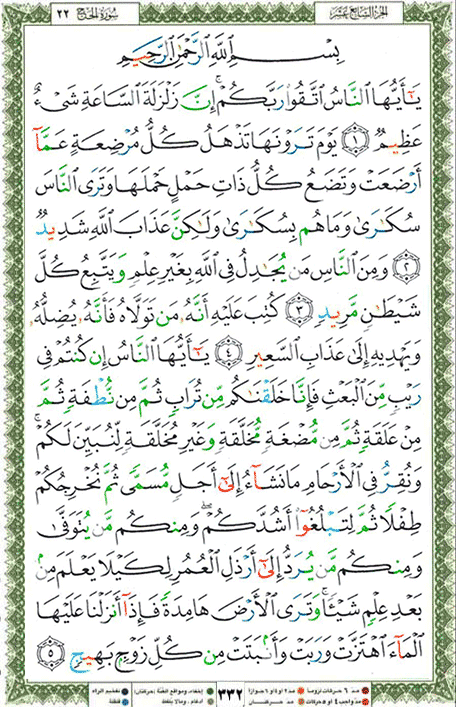 سُورَةُ الحَجِّ ٢٢
الجُزْءُ السَّابِعَ عَشَرَ
بِسْمِ اللَّهِ الرَّحْمَٰنِ الرَّحِيمِ
يَٰٓأَيُّهَا النَّاسُ اتَّقُوا رَبَّكُمْ ۚ إِنَّ زَلْزَلَةَ السَّاعَةِ شَىْءٌ
عَظِيمٌ ١ يَوْمَ تَرَوْنَهَا تَذْهَلُ كُلُّ مُرْضِعَةٍ عَمَّآ
أَرْضَعَتْ وَتَضَعُ كُلُّ ذَاتِ حَمْلٍ حَمْلَهَا وَتَرَى النَّاسَ
سُكَٰرَىٰ وَمَا هُم بِسُكَٰرَىٰ وَلَٰكِنَّ عَذَابَ اللَّهِ شَدِيدٌ
٢ وَمِنَ النَّاسِ مَن يُجَٰدِلُ فِى اللَّهِ بِغَيْرِ عِلْمٍ وَيَتَّبِعُ كُلَّ
شَيْطَٰنٍ مَّرِيدٍ ٣ كُتِبَ عَلَيْهِ أَنَّهُۥ مَن تَوَلَّاهُ فَأَنَّهُۥ يُضِلُّهُۥ
وَيَهْدِيهِ إِلَىٰ عَذَابِ السَّعِيرِ ٤ يَٰٓأَيُّهَا النَّاسُ إِن كُنتُمْ فِى
رَيْبٍ مِّنَ الْبَعْثِ فَإِنَّا خَلَقْنَٰكُم مِّن تُرَابٍ ثُمَّ مِن نُّطْفَةٍ ثُمَّ
مِنْ عَلَقَةٍ ثُمَّ مِن مُّضْغَةٍ مُّخَلَّقَةٍ وَغَيْرِ مُخَلَّقَةٍ لِّنُبَيِّنَ لَكُمْ ۚ
وَنُقِرُّ فِى الْأَرْحَامِ مَا نَشَآءُ إِلَىٰٓ أَجَلٍ مُّسَمًّى ثُمَّ نُخْرِجُكُمْ
طِفْلًا ثُمَّ لِتَبْلُغُوٓا أَشُدَّكُمْ ۖ وَمِنكُم مَّن يُتَوَفَّىٰ
وَمِنكُم مَّن يُرَدُّ إِلَىٰٓ أَرْذَلِ الْعُمُرِ لِكَيْلَا يَعْلَمَ مِن
بَعْدِ عِلْمٍ شَيْـًٔا ۚ وَتَرَى الْأَرْضَ هَامِدَةً فَإِذَآ أَنزَلْنَا عَلَيْهَا
الْمَآءَ اهْتَزَّتْ وَرَبَتْ وَأَنۢبَتَتْ مِن كُلِّ زَوْجٍۭ بَهِيجٍ ٥
٣٣٢